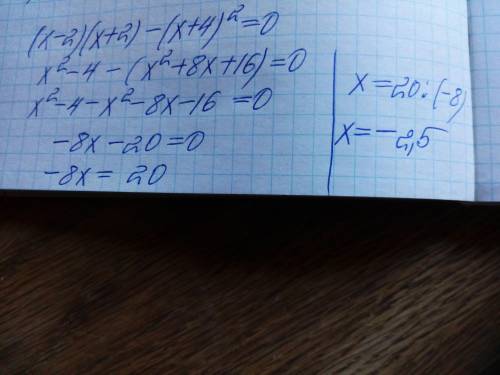 (x-2)(x+2)-(x+4)²=0
x²-4-(x²+8x+16)=0
x²-4-x²-8x-16=0
-8x-20=0
-8x=20
x=20:(-8)
x=-2,5